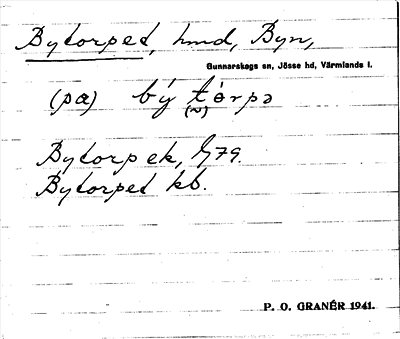 Bytorpet, hmd, Byn,
Gunnarskogs sn, Jösse hd, Värmlands l.
(pα) bý tórpə
(n)
Bytorp ek, G79.
Bytorpet kb.
P. O. GRANÉR 1941.